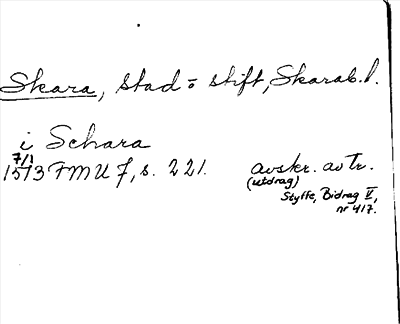 Skara, stad o stift, Skarab. l.
i Schara
7/1
1513 FMU 7, s. 221. avskr. av Tr.
(utdrag)
Styffe, Bidrag V,
nr 417.